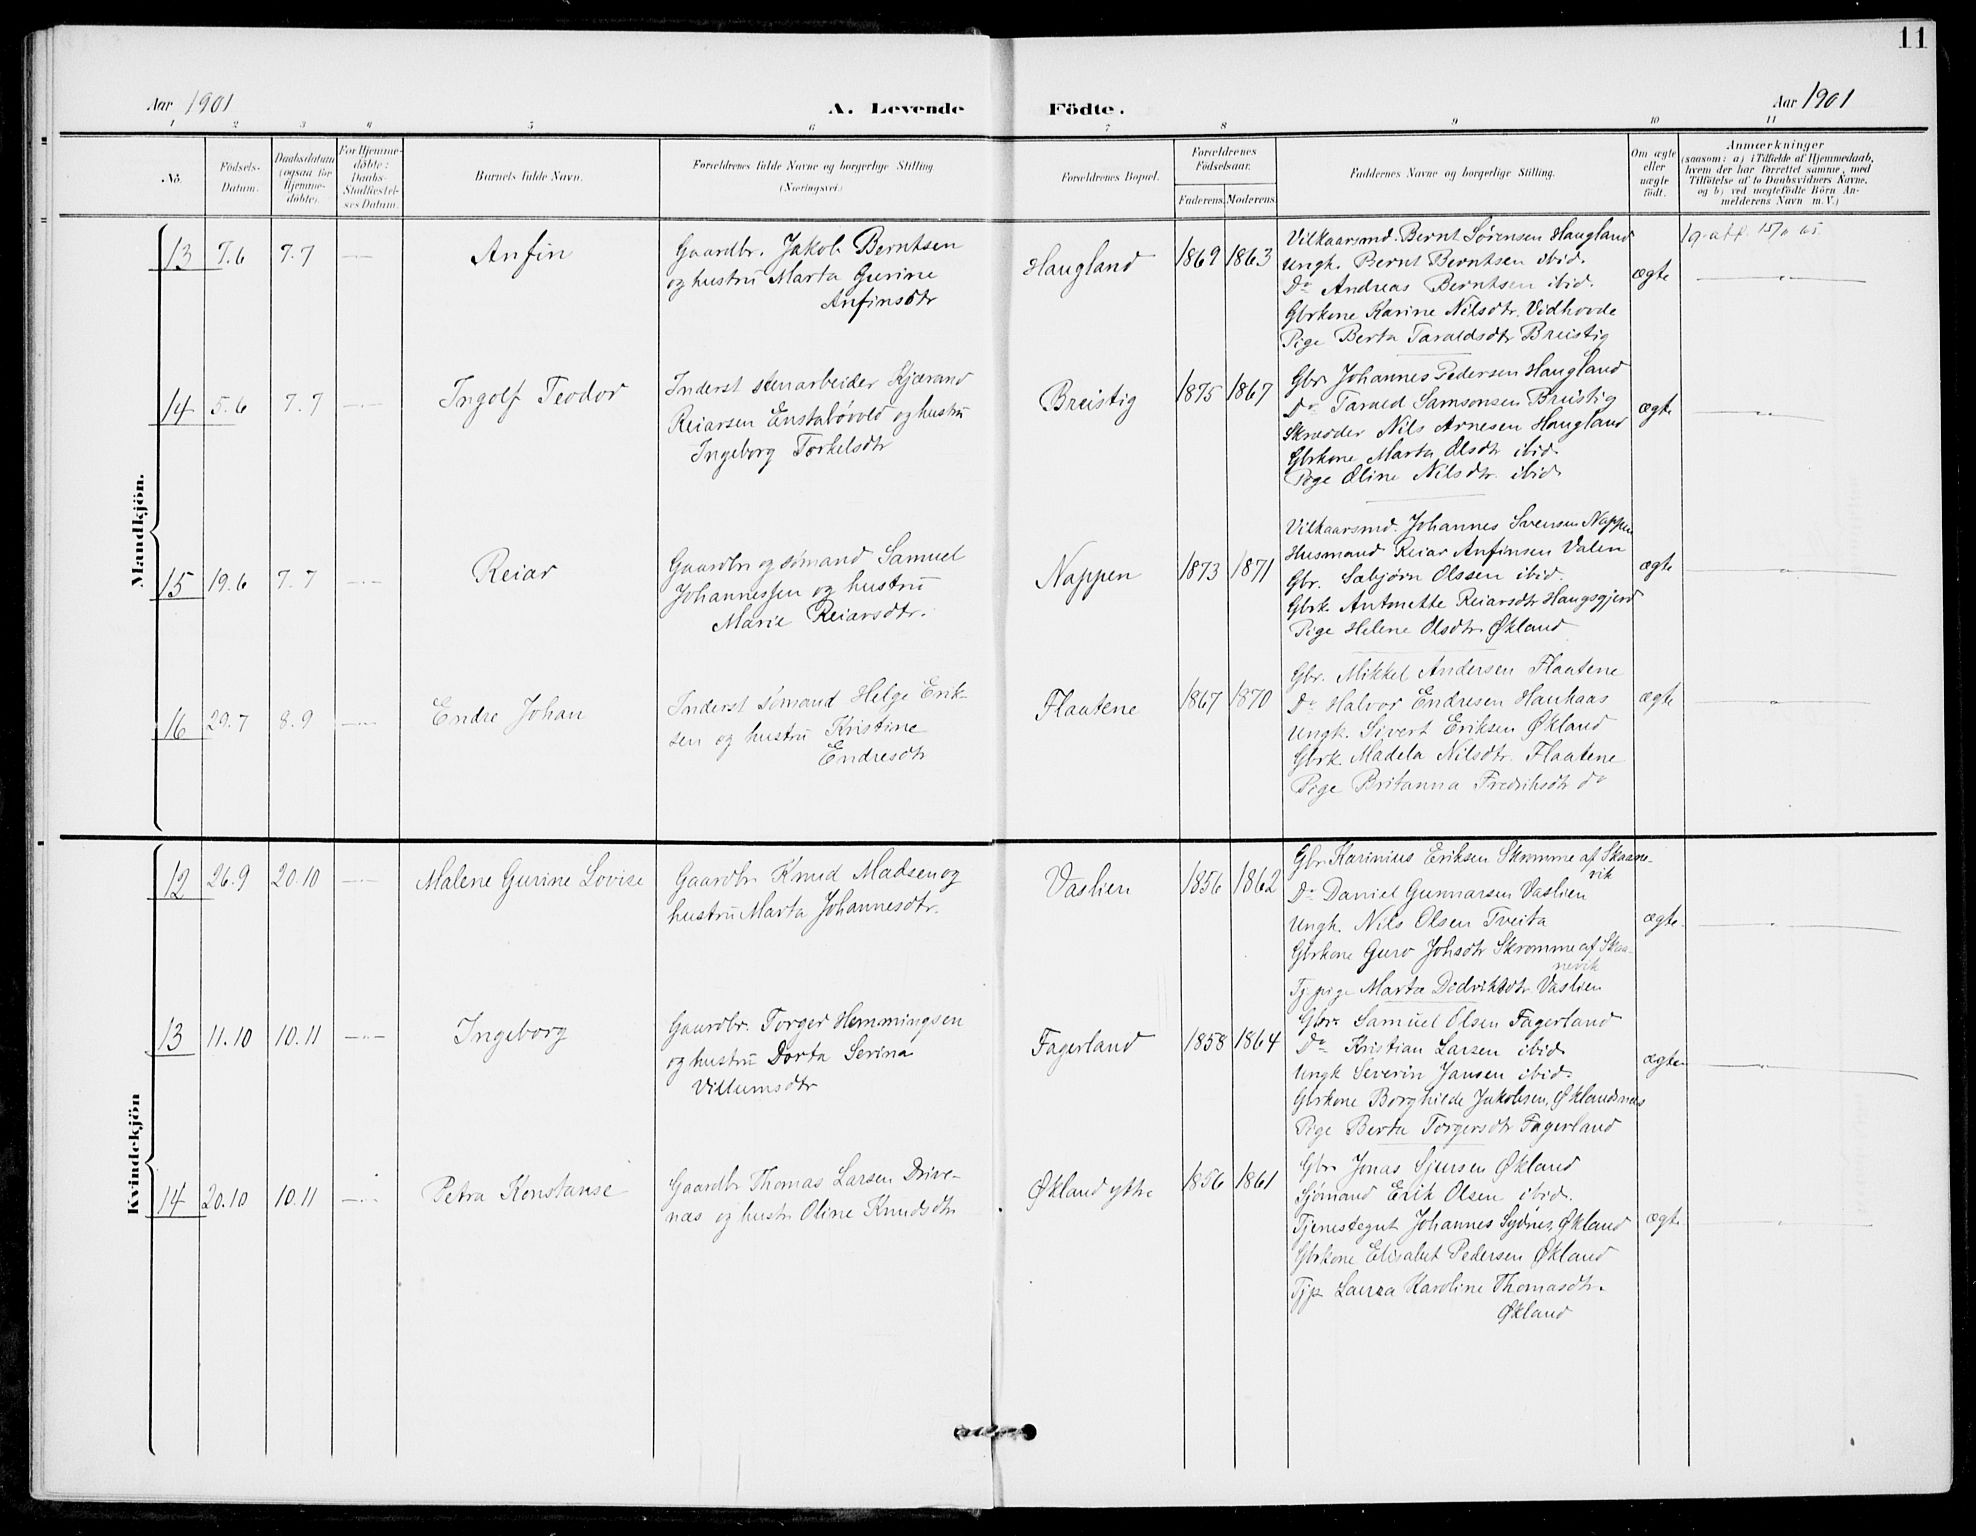 11
Aar 1901
A. Levende Födte.
Aar 1901
1 2 3 4 5 6 7 8 9 10 11
No. Födsels-Datum. Daabsdatum (ogsaa for Hjemmedöbte). For Hjemmedöbte: Daabs-Stadfæstelses Datum. Barnets fulde Navn. Forældrenes fulde Navne og borgerlige Stilling (Næringsvei.) Forældrenes Bopæl. Forældrenes Födselsaar. Faderens. Moderens. Faddernes Navne og borgerlige Stilling. Om ægte eller uægte födt. Anmærkninger (saasom: a) i Tilfælde af Hjemmedaab, hvem der har forrettet samme, med Tilföielse af to Daabsvidners Navne, og b) ved uægtefödte Börn Anmelderens Navn m. V.)
Mandkjön.
13 7.6 7.7 Anfin
Gaardbr. Jakob Berntsen
og hustru Marta Gurine
Anfinsdtr
Haugland 1869 1863
Vilkaarsmd. Bernt Sørensen Haugland
Ungk. Bernt Berntsen ibid.
Do Andreas Berntsen ibid.
Gbrkone Karine Nilsdtr. Vidhovde
Pige Berta Taraldsdtr Breistig
ægte
14 5.6 7.7 Ingolf Teodor
Inderst stenarbeider Kjærand
Reiarsen Enstabøvold og hustru
Ingeborg Torkelsdtr
Breistig 1875 1867
Gbr. Johannes Pedersen Haugland
Do Tarald Samsonsen Breistig
Skrædder Nils Arnesen Haugland
Gbrkone Marta Olsdtr ibid.
Pige Oline Nilsdtr. ibid.
ægte
15 19.6 7.7 Reiar
Gaardbr og sømand Samuel
Johannessen og hustru
Marie Reiarsdtr.
Nappen 1873 1871
Vilkaarsmd. Johannes Svensen Nappen
Husmand Reiar Anfinsen Valen
Gbr. Sæbjørn Olssen ibid.
Gbrk Antonette Reiarsdtr Haugsgjerd
Pige Helene Olsdtr. Økland
ægte
16 29.7 8.9 Endre Johan
Inderst sømand Helge Erik-
sen og hustru Kristine
Endresdtr
Flaatene 1867 1870
Gbr. Mikkel Andersen Flaatene
Do Halvor Endresen Haukaas
Ungk. Sivert Eriksen Økland
Gbrk. Madela Nilsdtr. Flaatene
Pige Britanna Fredriksdtr do
ægte
Kvindekjön
12 26.9 20.10 Malene Gurine Lovise
Gaardbr Knud Madsen og
hustru Marta Johannesdtr.
Vaslien 1856 1862
Gbr. Karinius Eriksen Skromme af Skaane-
vik
Do Daniel Gunnarsen Vaslien
Ungk. Nils Olsen Tveita
Gbrkone Guro Johsdtr Skromme af Skaa-
nevik
Tj.pige Marta Didriksdtr Vaslien
ægte
13 11.10 10.11 Ingeborg
Gaardbr. Torger Hemmingsen
og hustru Dorta Serina
Villumsdtr
Fagerland 1858 1864
Gbr. Samuel Olsen Fagerland
Do Kristian Larsen ibid.
Ungk Severin Jansen ibid.
Gbrkone Borghilde Jakobsen, Øklandsnæs
Pige Berta Torgersdtr Fagerland
ægte
14 20.10 10.11 Petra Konstanse
Gaardbr Thomas Larsen Drive-
næs og hustr Oline Knudsdtr
Økland ytre 1856 1861
Gbr Jonas Sjursen Økland
Sjømand Erik Olsen ibid.
Tjenestegut Johannes Sydnes, Økland
Gbrkone Elisabet Pedersen Økland
Tjp Laura Karoline Thomasdtr.
Økland
ægte